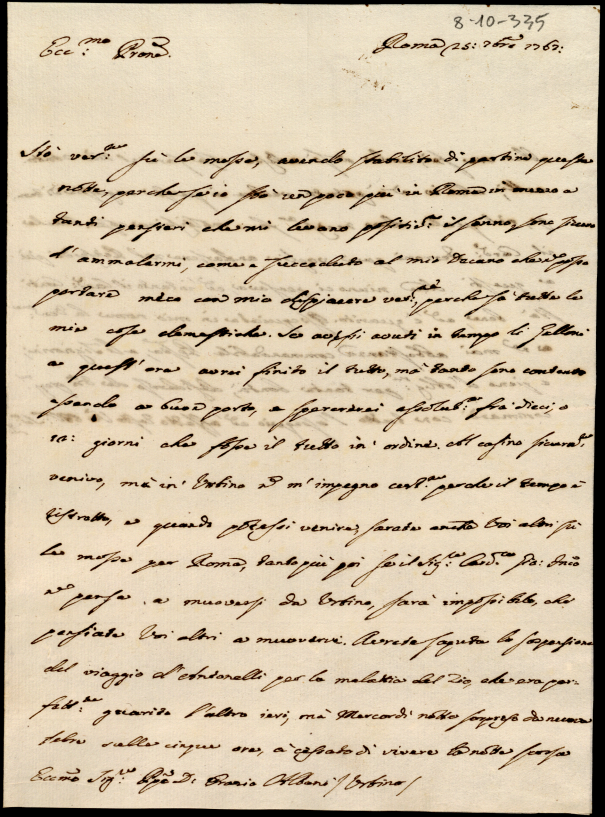 8-10-335
Ecc.mo Prone. Roma 25: 7bre 1767:
Stò ver.te sù le mosse, avendo stabilito di partire questa
notte, perche se io stò un poco più in Roma in mezzo a
tanti pensieri che mi levano positiv.te il sonno, sono sicuro
d'ammalarmi, come è succeduto al mio Decano che posso
portare meco con mio dispiacere ver.te, perche sà tutte le
mie cose domestiche. Se avessi avuti in tempo li Galloni
a quest'ora avrei finito il tutto, mà tanto sono contento
essendo a buon porto, e spererei assolut.te frà dieci, o
12: giorni che fosse il tutto in ordine. Al casino sicura.te
venivo, mà in Urbino m'impegno cert.te perche il tempo è
ristretto, e quando potessi venire, sarete anche Voi altri sù
le mosse per Roma, tanto più poi se il Sig.re Card.
pensa a muoversi da Urbino, sarà impossibile, che
pensiate Voi altri a muovervi. Avrete saputa la sospensione
del viaggio d'Antonelli per la malattia del Zio, che era per-
fett.te guarito l'altro ieri, mà Mercordì notte sorpreso da nuova
febre sulle cinque ore, à cessato di vivere la notte scorsa
Eccmo Sig.re Ppe D: Orazio Albani / Urbino /